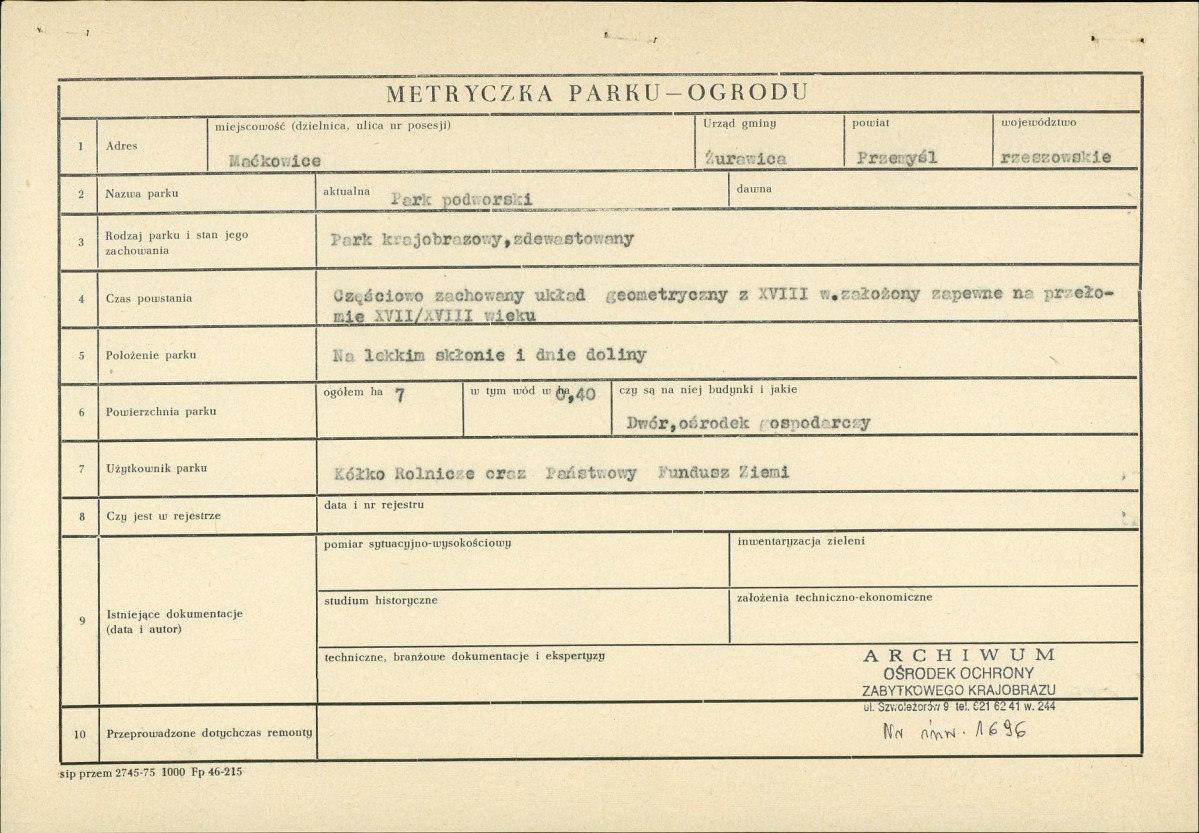 METRYCZKA PARKU — OGRODU
1 Adres
miejscowość (dzielnica, ulica nr posesji)
Maćkowice
Urząd gminy
Żurawica
powiat
Przemyśl
województwo
rzeszowskie
2 Nazwa parku
aktualna
Park podworski
dawna
3 Rodzaj parku i stan jego
zachowania
Park krajobrazowy,zdewastowany
4 Czas powstania
Częściowo zachowany układ geometryczny z XVIII w.założony zapewne na przeło-
mie XVII/XVIII wieku
5 Położenie parku
Na lekkim skłonie i dnie doliny
6 Powierzchnia parku
ogółem ha 7
w tym wód w ha 0,40
czy są na niej budynki i jakie
Dwór,ośrodek gospodarczy
7 Użytkownik parku
Kółko Rolnicze oraz Państwowy Fundusz Ziemi
8 Czy jest w rejestrze
data i nr rejestru
9 Istniejące dokumentacje
(data i autor)
pomiar sytuacyjno-wysokościowy
inwentaryzacja zieleni
studium historyczne
założenia techniczno-ekonomiczne
techniczne, branżowe dokumentacje i ekspertyzy
ARCHIWUM
OŚRODEK OCHRONY
ZABYTKOWEGO KRAJOBRAZU
ul. Szwoleżerów 9 tel. 621 62 41 w. 244
Nr inw. 1696
10 Przeprowadzone dotychczas remonty
sip przem 2745-75 1000 Fp 46-215